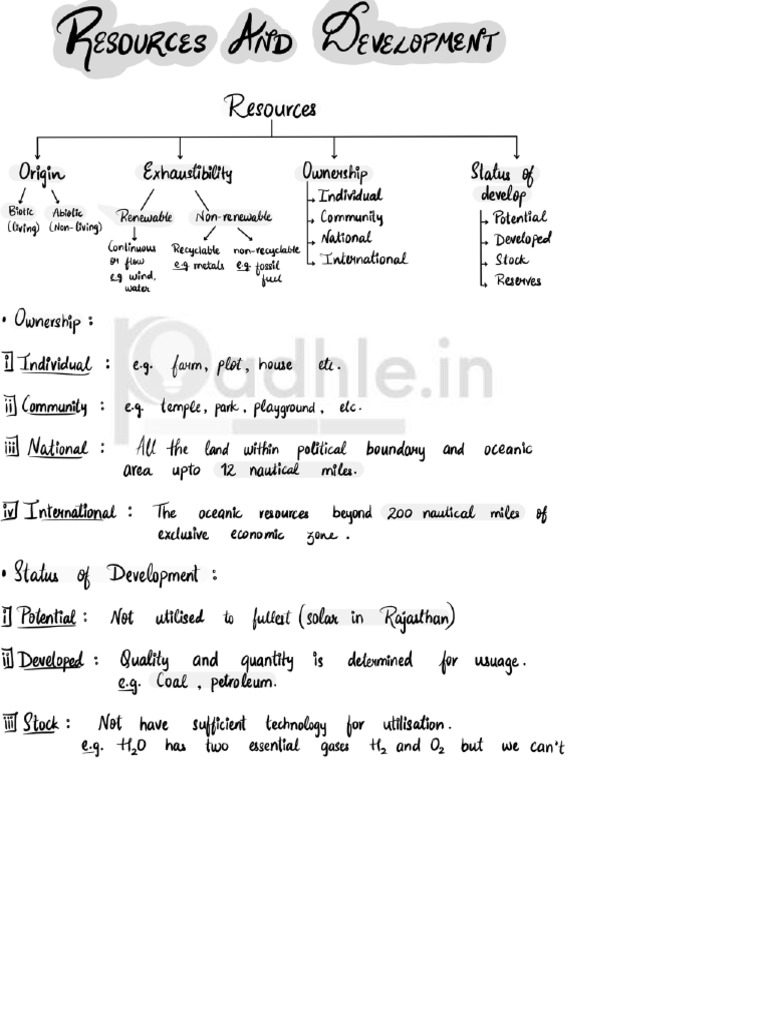 RESOURCES AND DEVELOPMENT
Resources
Origin
Exhaustibility
Ownership
Status of
develop
Biotic
(living)
Abiotic
(Non-living)
Renewable
Non-renewable
Continuous
or flow
e.g wind,
water
Recyclable
e.g metals
non-recyclable
e.g. fossil
fuel
Individual
Community
National
International
Potential
Developed
Stock
Reserves
padhle.in
• Ownership :
i] Individual : e.g. farm, plot, house etc.
ii] Community : e.g. temple, park, playground, etc.
iii] National : All the land within political boundary and oceanic
area upto 12 nautical miles.
iv] International : The oceanic resources beyond 200 nautical miles of
exclusive economic zone.
• Status of Development :
i] Potential : Not utilised to fullest (solar in Rajasthan)
ii] Developed : Quality and quantity is determined for usuage.
e.g. Coal, petroleum.
iii] Stock : Not have sufficient technology for utilisation.
e.g. H₂O has two essential gases H₂ and O₂ but we can't